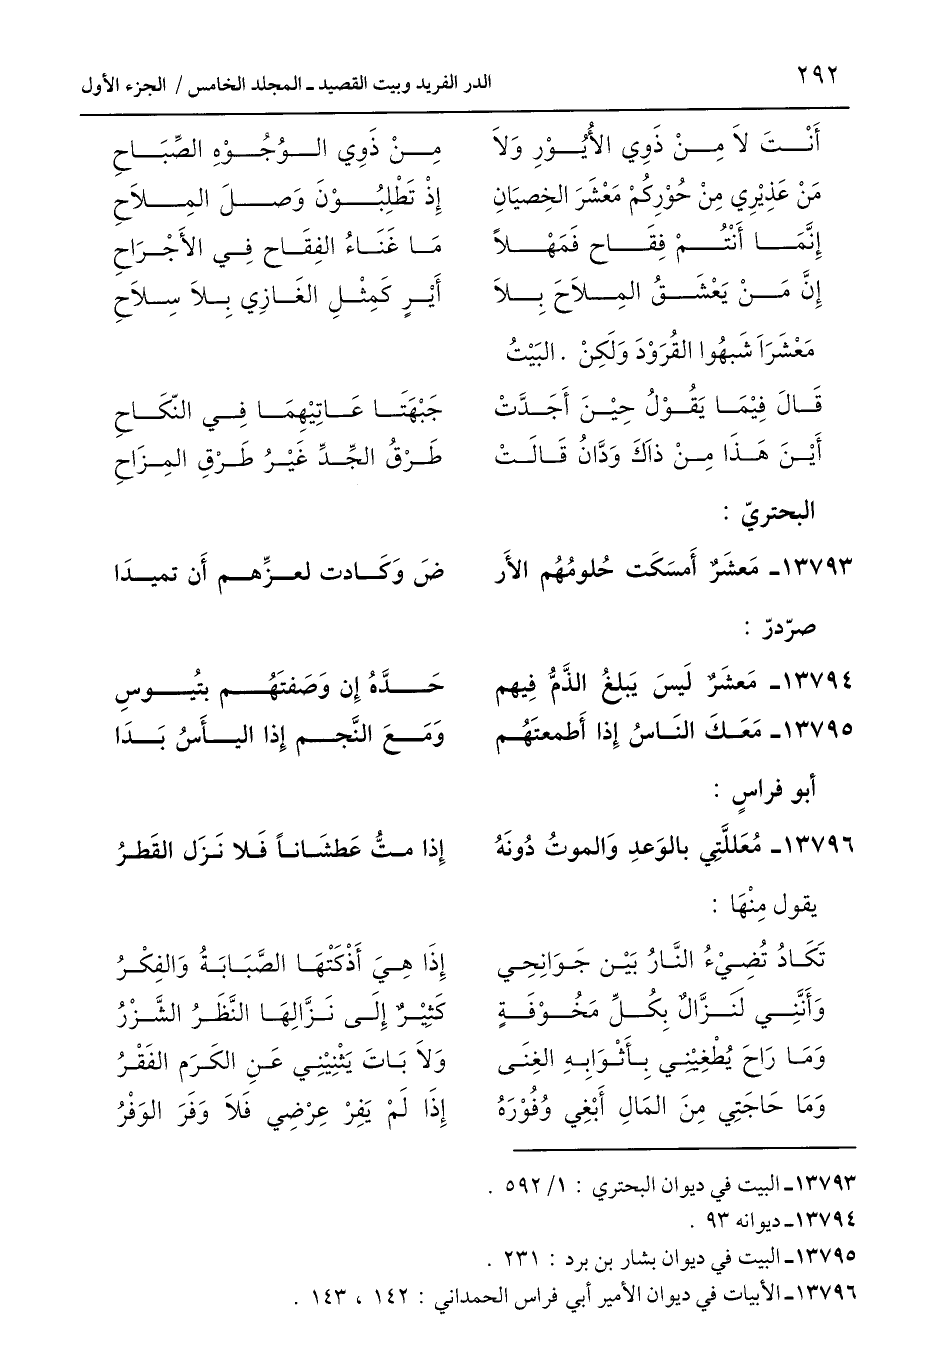 ٢٩٢ الدر الفريد وبيت القصيد ـ المجلد الخامس / الجزء الأول
أَنْتَ لاَ مِنْ ذَوِي الأُيُوْرِ وَلاَ مِنْ ذَوِي الوُجُوْهِ الصِّبَاحِ
مَنْ عَذِيْرِي مِنْ حُوْرِكُمْ مَعْشَرَ الخِصيَانِ إِذْ تَطْلِبُوْنَ وَصلَ المِلاَحِ
إِنَّمَا أَنْتُمْ فِقَاح فَمَهْلاً مَا غَنَاءُ الفِقَاحِ فِي الأَجْرَاحِ
إِنَّ مَنْ يَعْشَقُ المِلاَحَ بِلاَ أَيْرٍ كَمِثْلِ الغَازِي بِلاَ سِلاَحِ
مَعْشَرَاً شَبهُوا القُرَوْدَ وَلَكِنْ . البَيْتُ
قَالَ فِيْمَا يَقُوْلُ حِيْنَ أَجَدَّتْ جَبْهَتَا عَاتِيْهِمَا فِي النّكَاحِ
أَيْنَ هَذَا مِنْ ذَاكَ وَدَّانُ قَالَتْ طَرْقُ الجِّدِّ غَيْرُ طَرْقِ المِزَاحِ
البحتريّ :
١٣٧٩٣ـ مَعشَرٌ أَمسَكَت حُلومُهُم الأَر ضَ وَكَادت لعزِّهم أَن تميدَا
صرّدرّ :
١٣٧٩٤ـ مَعشَرٌ لَيسَ يَبلغُ الذَّمُّ فِيهم حَدَّهُ إن وَصَفتَهُم بتُيوسِ
١٣٧٩٥ـ مَعَكَ النَاسُ إذا أَطمعتَهُم وَمَعَ النَّجم إذا اليأسُ بَدَا
أبو فراسٍ :
١٣٧٩٦ـ مُعَللَّتِي بالوَعدِ وَالموتُ دُونَهُ إذا متُّ عَطشَاناً فَلا نزَل القَطرُ
يقول مِنْهَا :
تَكَادُ تُضِيْءُ النَّارُ بَيْن جَوَانِحِي إِذَا هِيَ أَذْكَتْهَا الصَّبَابَةُ وَالفِكْرُ
وَأَنَّنِي لَنَزَّالٌ بِكُلِّ مَخُوْفَةٍ كَثِيْرٌ إِلَى نَزَّالِهَا النَّظَرُ الشَّزْرُ
وَمَا رَاحَ يُطْغِيْنِي بِأَثْوَابِهِ الغِنَى وَلاَ بَاتَ يَثْنِيْنِي عَنِ الكَرَمِ الفَقْرُ
وَمَا حَاجَتِي مِنَ المَالِ أَبْغِي وُفُوْرَهُ إِذَا لَمْ يَفِرْ عِرْضِي فَلاَ وَفَرَ الوَفْرُ
١٣٧٩٣ـ البيت في ديوان البحتري : ١/ ٥٩٢ .
١٣٧٩٤ـ ديوانه ٩٣ .
١٣٧٩٥ـ البيت في ديوان بشار بن برد : ٢٣١ .
١٣٧٩٦ـ الأبيات في ديوان الأمير أبي فراس الحمداني : ١٤٢ ، ١٤٣ .